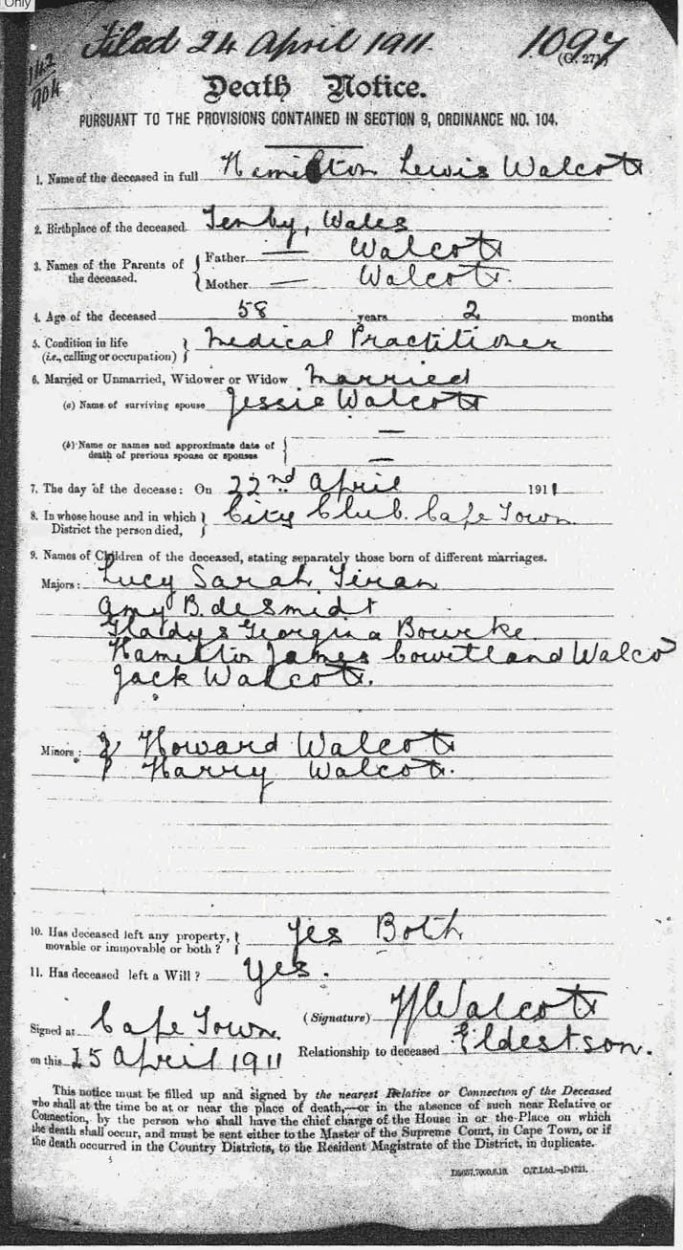 Only
Filed 24 April 1911. 1097
(G. 27)
142
904
Death Notice.
PURSUANT TO THE PROVISIONS CONTAINED IN SECTION 9, ORDINANCE NO. 104.
1. Name of the deceased in full Hamilton Lewis Walcott
2. Birthplace of the deceased Tenby, Wales
3. Names of the Parents of the deceased. { Father — Walcott
Mother — Walcott.
4. Age of the deceased 58 years 2 months
5. Condition in life (i.e., calling or occupation) } Medical Practitioner
6. Married or Unmarried, Widower or Widow Married
(a) Name of surviving spouse Jessie Walcott
(b) Name or names and approximate date of death of previous spouse or spouses } —
—
7. The day of the decease: On 22nd April 1911
8. In whose house and in which District the person died, } City Club. Cape Town
9. Names of Children of the deceased, stating separately those born of different marriages.
Majors: Lucy Sarah Tiran
Amy B. deSmidt
Gladys Georgina Bourke
Hamilton James Walco
Jack Walcott.
Minors: Howard Walcott
Harry Walcott.
10. Has deceased left any property, movable or immovable or both? } Yes Both
11. Has deceased left a Will? Yes.
(Signature) Walcott
Signed at Cape Town
on this 25 April 1911 Relationship to deceased Eldest son.
This notice must be filled up and signed by the nearest Relative or Connection of the Deceased
who shall at the time be at or near the place of death,—or in the absence of such near Relative or
Connection, by the person who shall have the chief charge of the House in or the Place on which
the death shall occur, and must be sent either to the Master of the Supreme Court, in Cape Town, or if
the death occurred in the Country Districts, to the Resident Magistrate of the District, in duplicate.
C.T.Ltd.—D4721.